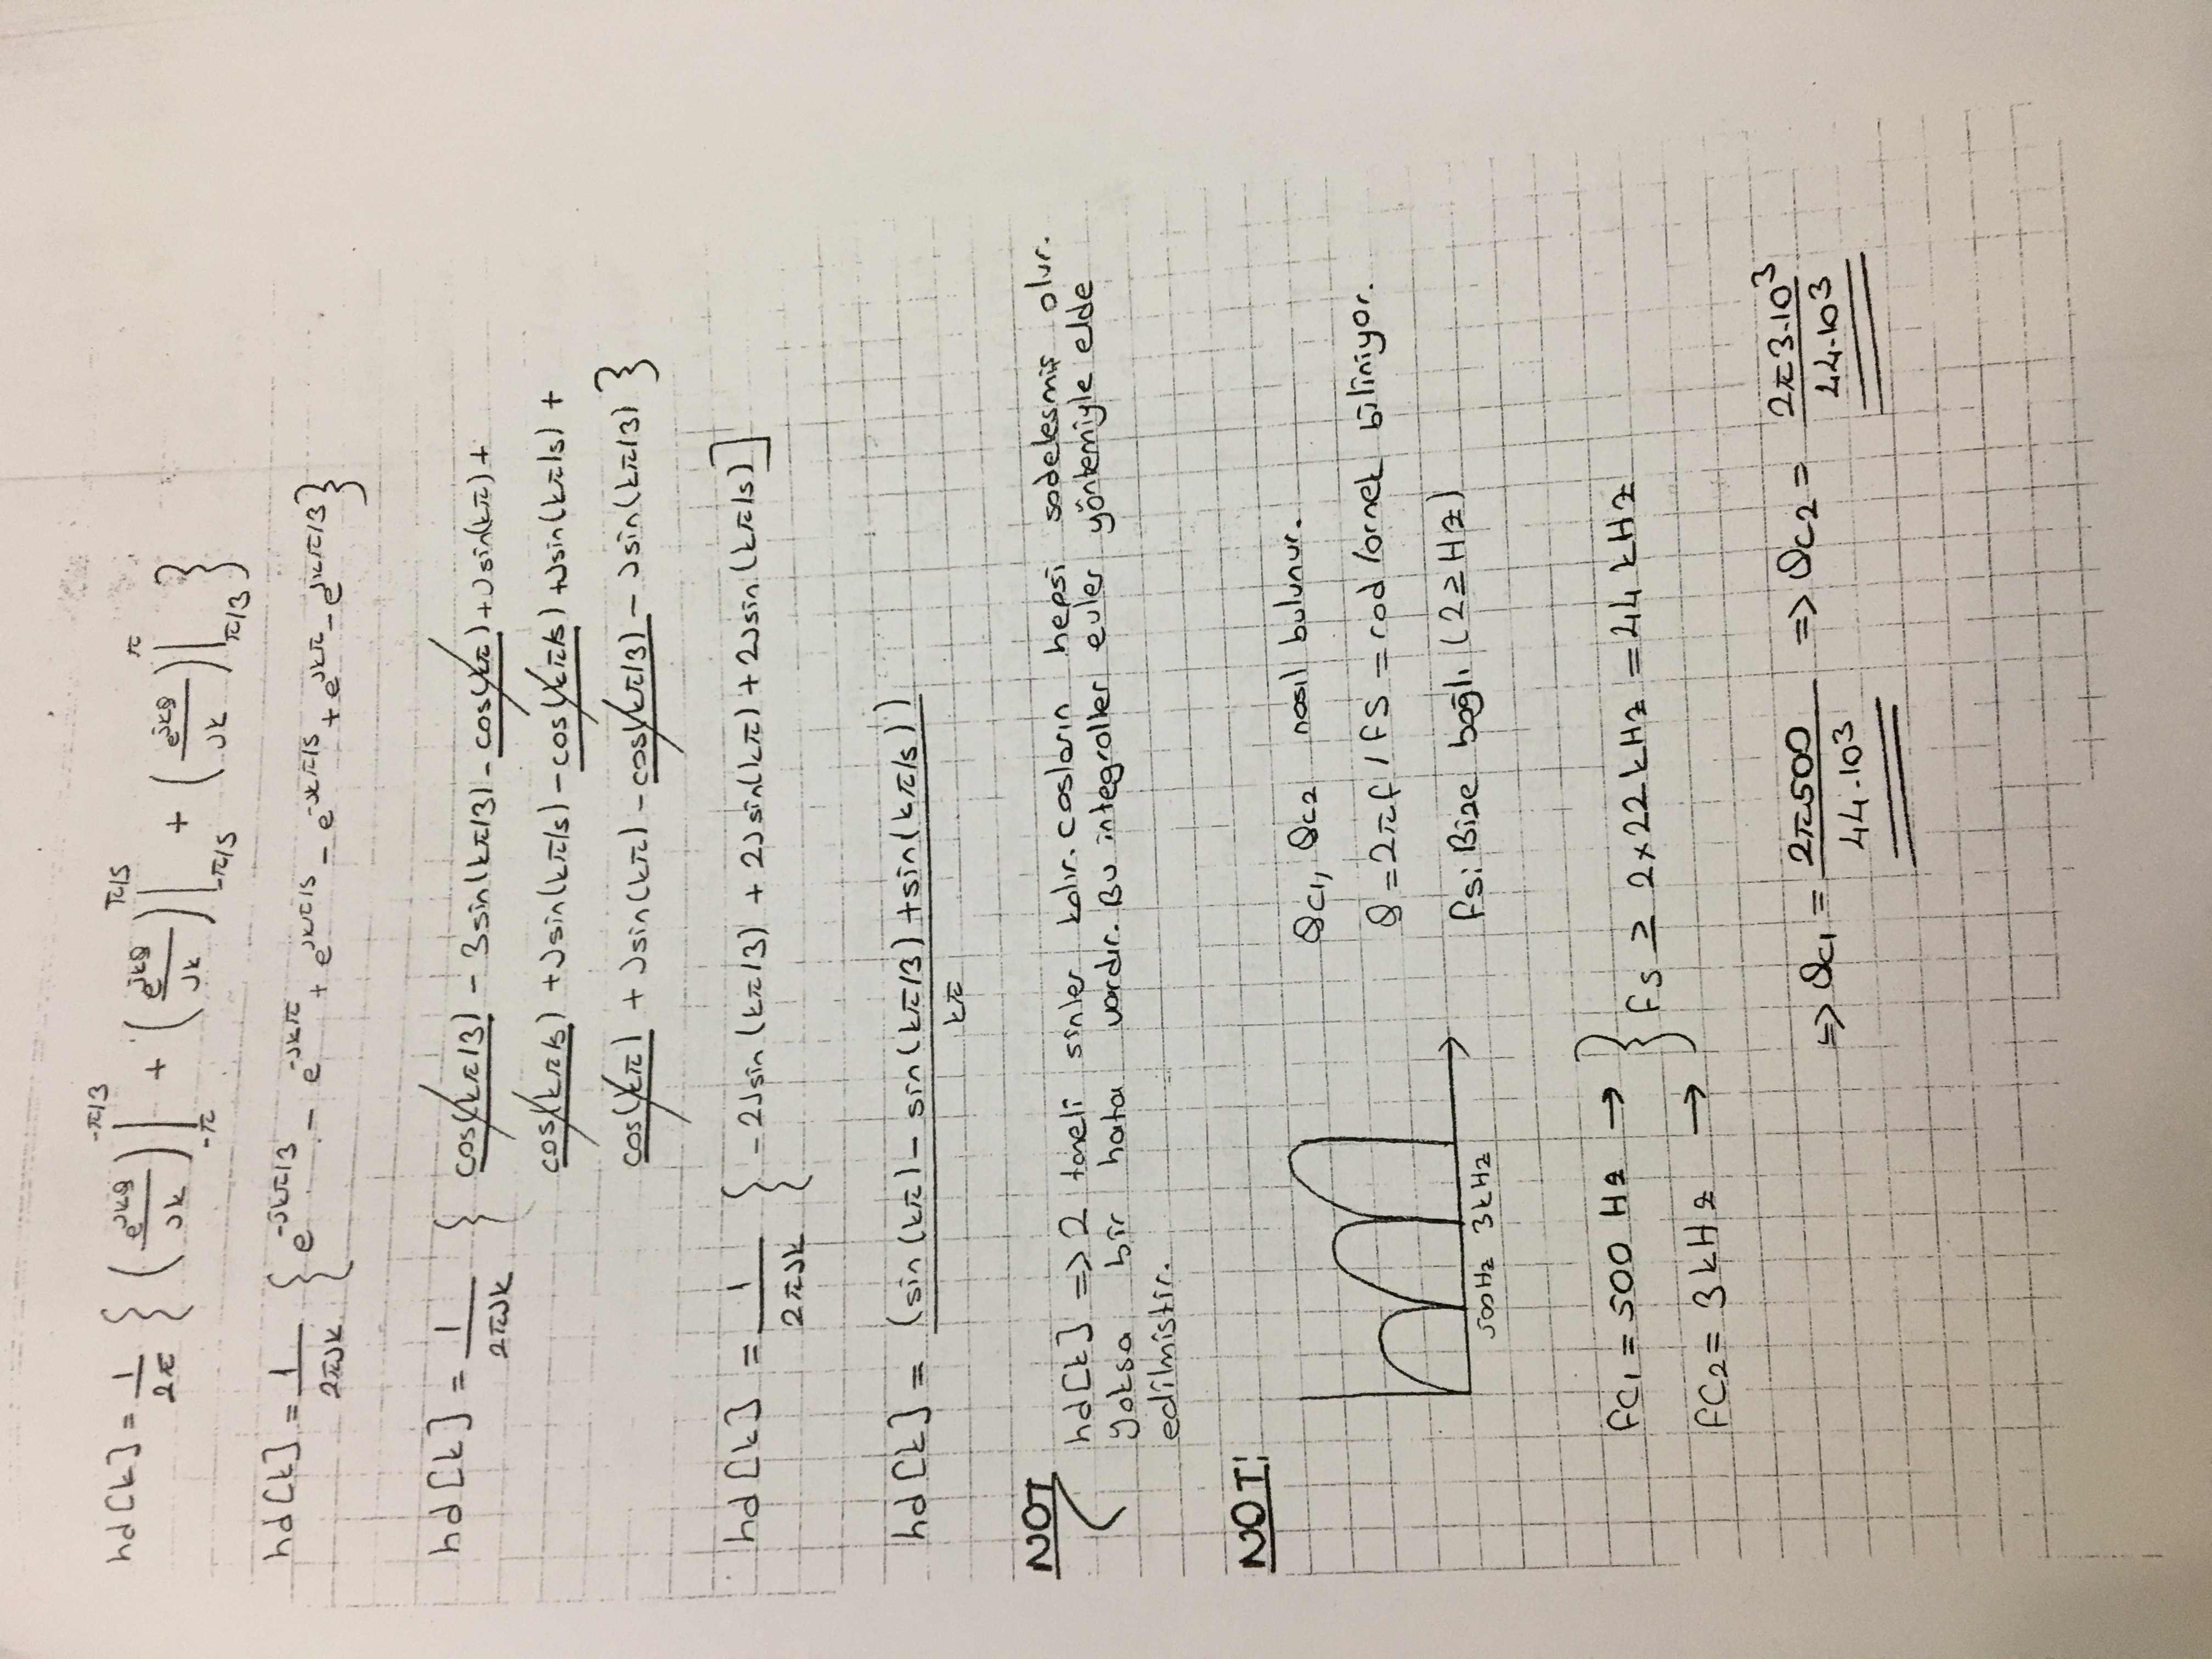 hd[k] = 1/2π { (e^jkθ/jk)|_-π^-π/3 + (e^jkθ/jk)|_-π/5^π/5 + (e^jkθ/jk)|_π/3^π }
hd[k] = 1/2πjk { e^-jkπ/3 - e^-jkπ + e^jkπ/5 - e^-jkπ/5 + e^jkπ - e^jkπ/3 }
hd[k] = 1/2πjk { cos(kπ/3) - 3sin(kπ/3) - cos(kπ) + jsin(kπ) +
cos(kπ/5) + jsin(kπ/5) - cos(kπ/5) + jsin(kπ/5) +
cos(kπ) + jsin(kπ) - cos(kπ/3) - jsin(kπ/3) }
hd[k] = 1/2πjk { -2jsin(kπ/3) + 2jsin(kπ) + 2jsin(kπ/5) ]
hd[k] = (sin(kπ) - sin(kπ/3) + sin(kπ/5))/kπ
NOT
hd[k] => 2 taneli sinler kalır. cosların hepsi sadeleşmiş olur.
Yoksa bir hata vardır. Bu integraller euler yöntemiyle elde
edilmistir.
NOT!
θc1, θc2 nasıl bulunur.
θ = 2πf / fS = rad / ornek biliniyor.
fs: Bize bağlı (2 ≥ Hz)
500Hz 3kHz
fC1 = 500 Hz →
fs ≥ 2x22 kHz = 44 kHz
fC2 = 3 kHz →
=> θc1 = 2π500/44.10^3 => θc2 = 2π3.10^3/44.10^3